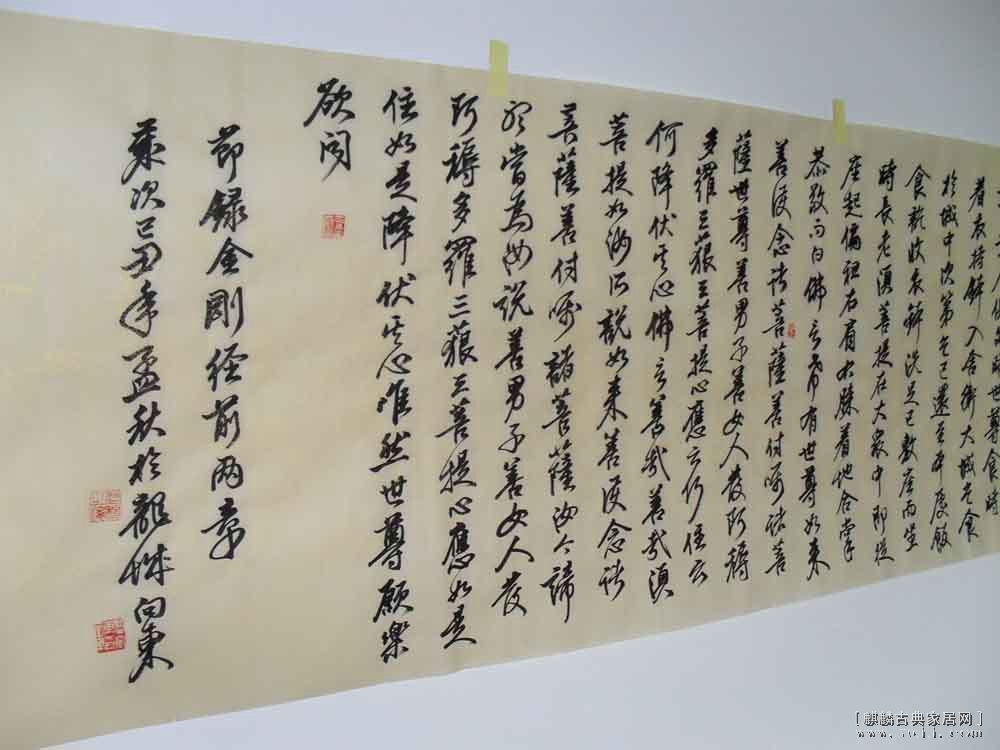 世尊食時
着衣持鉢入舍衛大城乞食
於城中次第乞已還至本處飯
食訖收衣鉢洗足已敷座而坐
時長老須菩提在大衆中即從
座起偏袒右肩右膝着地合掌
恭敬而白佛言希有世尊如来
善護念諸菩薩善付囑諸菩
薩世尊善男子善女人發阿耨
多羅三藐三菩提心應云何住云
何降伏其心佛言善哉善哉須
菩提如汝所說如来善護念諸
菩薩善付囑諸菩薩汝今諦
聽當為汝說善男子善女人發
阿耨多羅三藐三菩提心應如是
住如是降伏其心唯然世尊願樂
欲聞
節録金剛经前两章
歲次己丑年孟秋於龍城向東
[麒麟古典家居网]